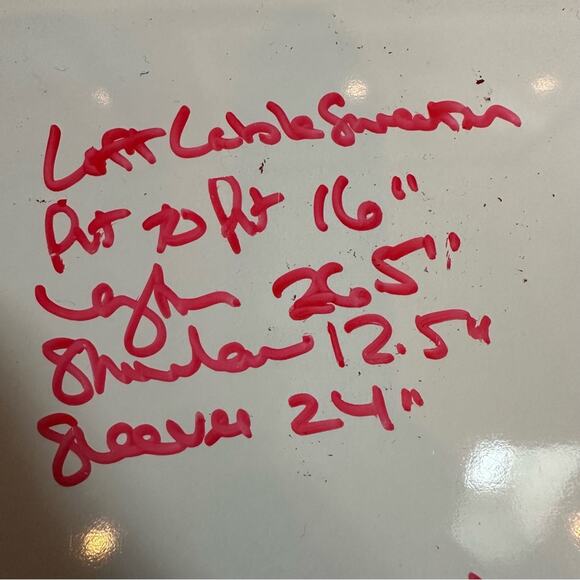 Loft Cable Sweater
Pit to Pit 16"
Length 26.5"
Shoulder 12.5"
Sleeves 24"